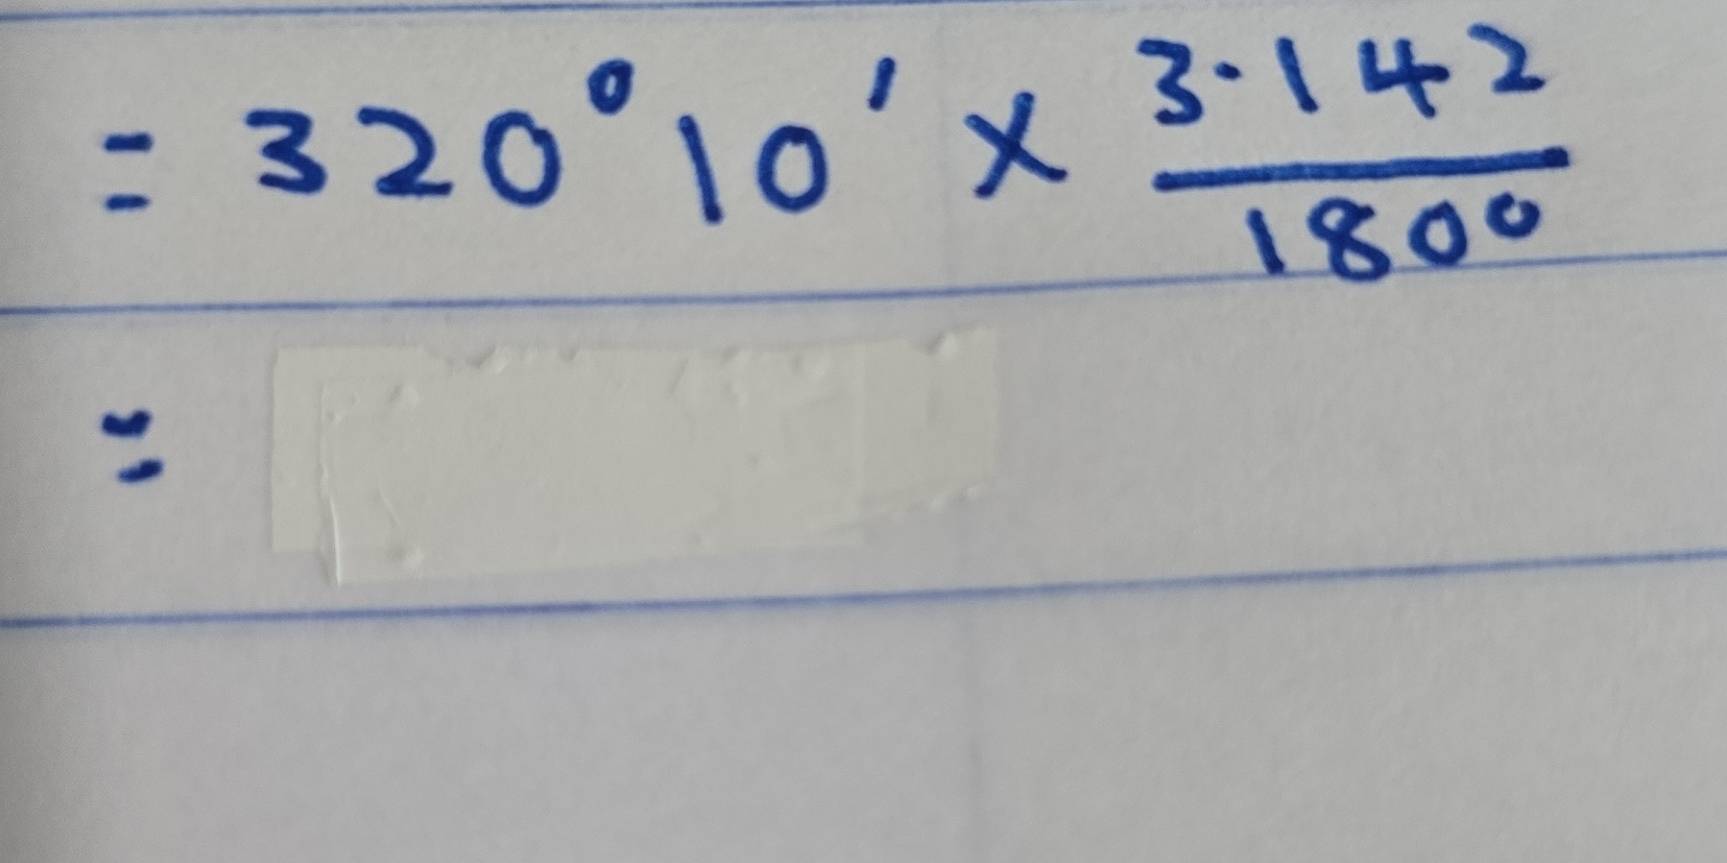 = 320°10' × 3.142/180°
=